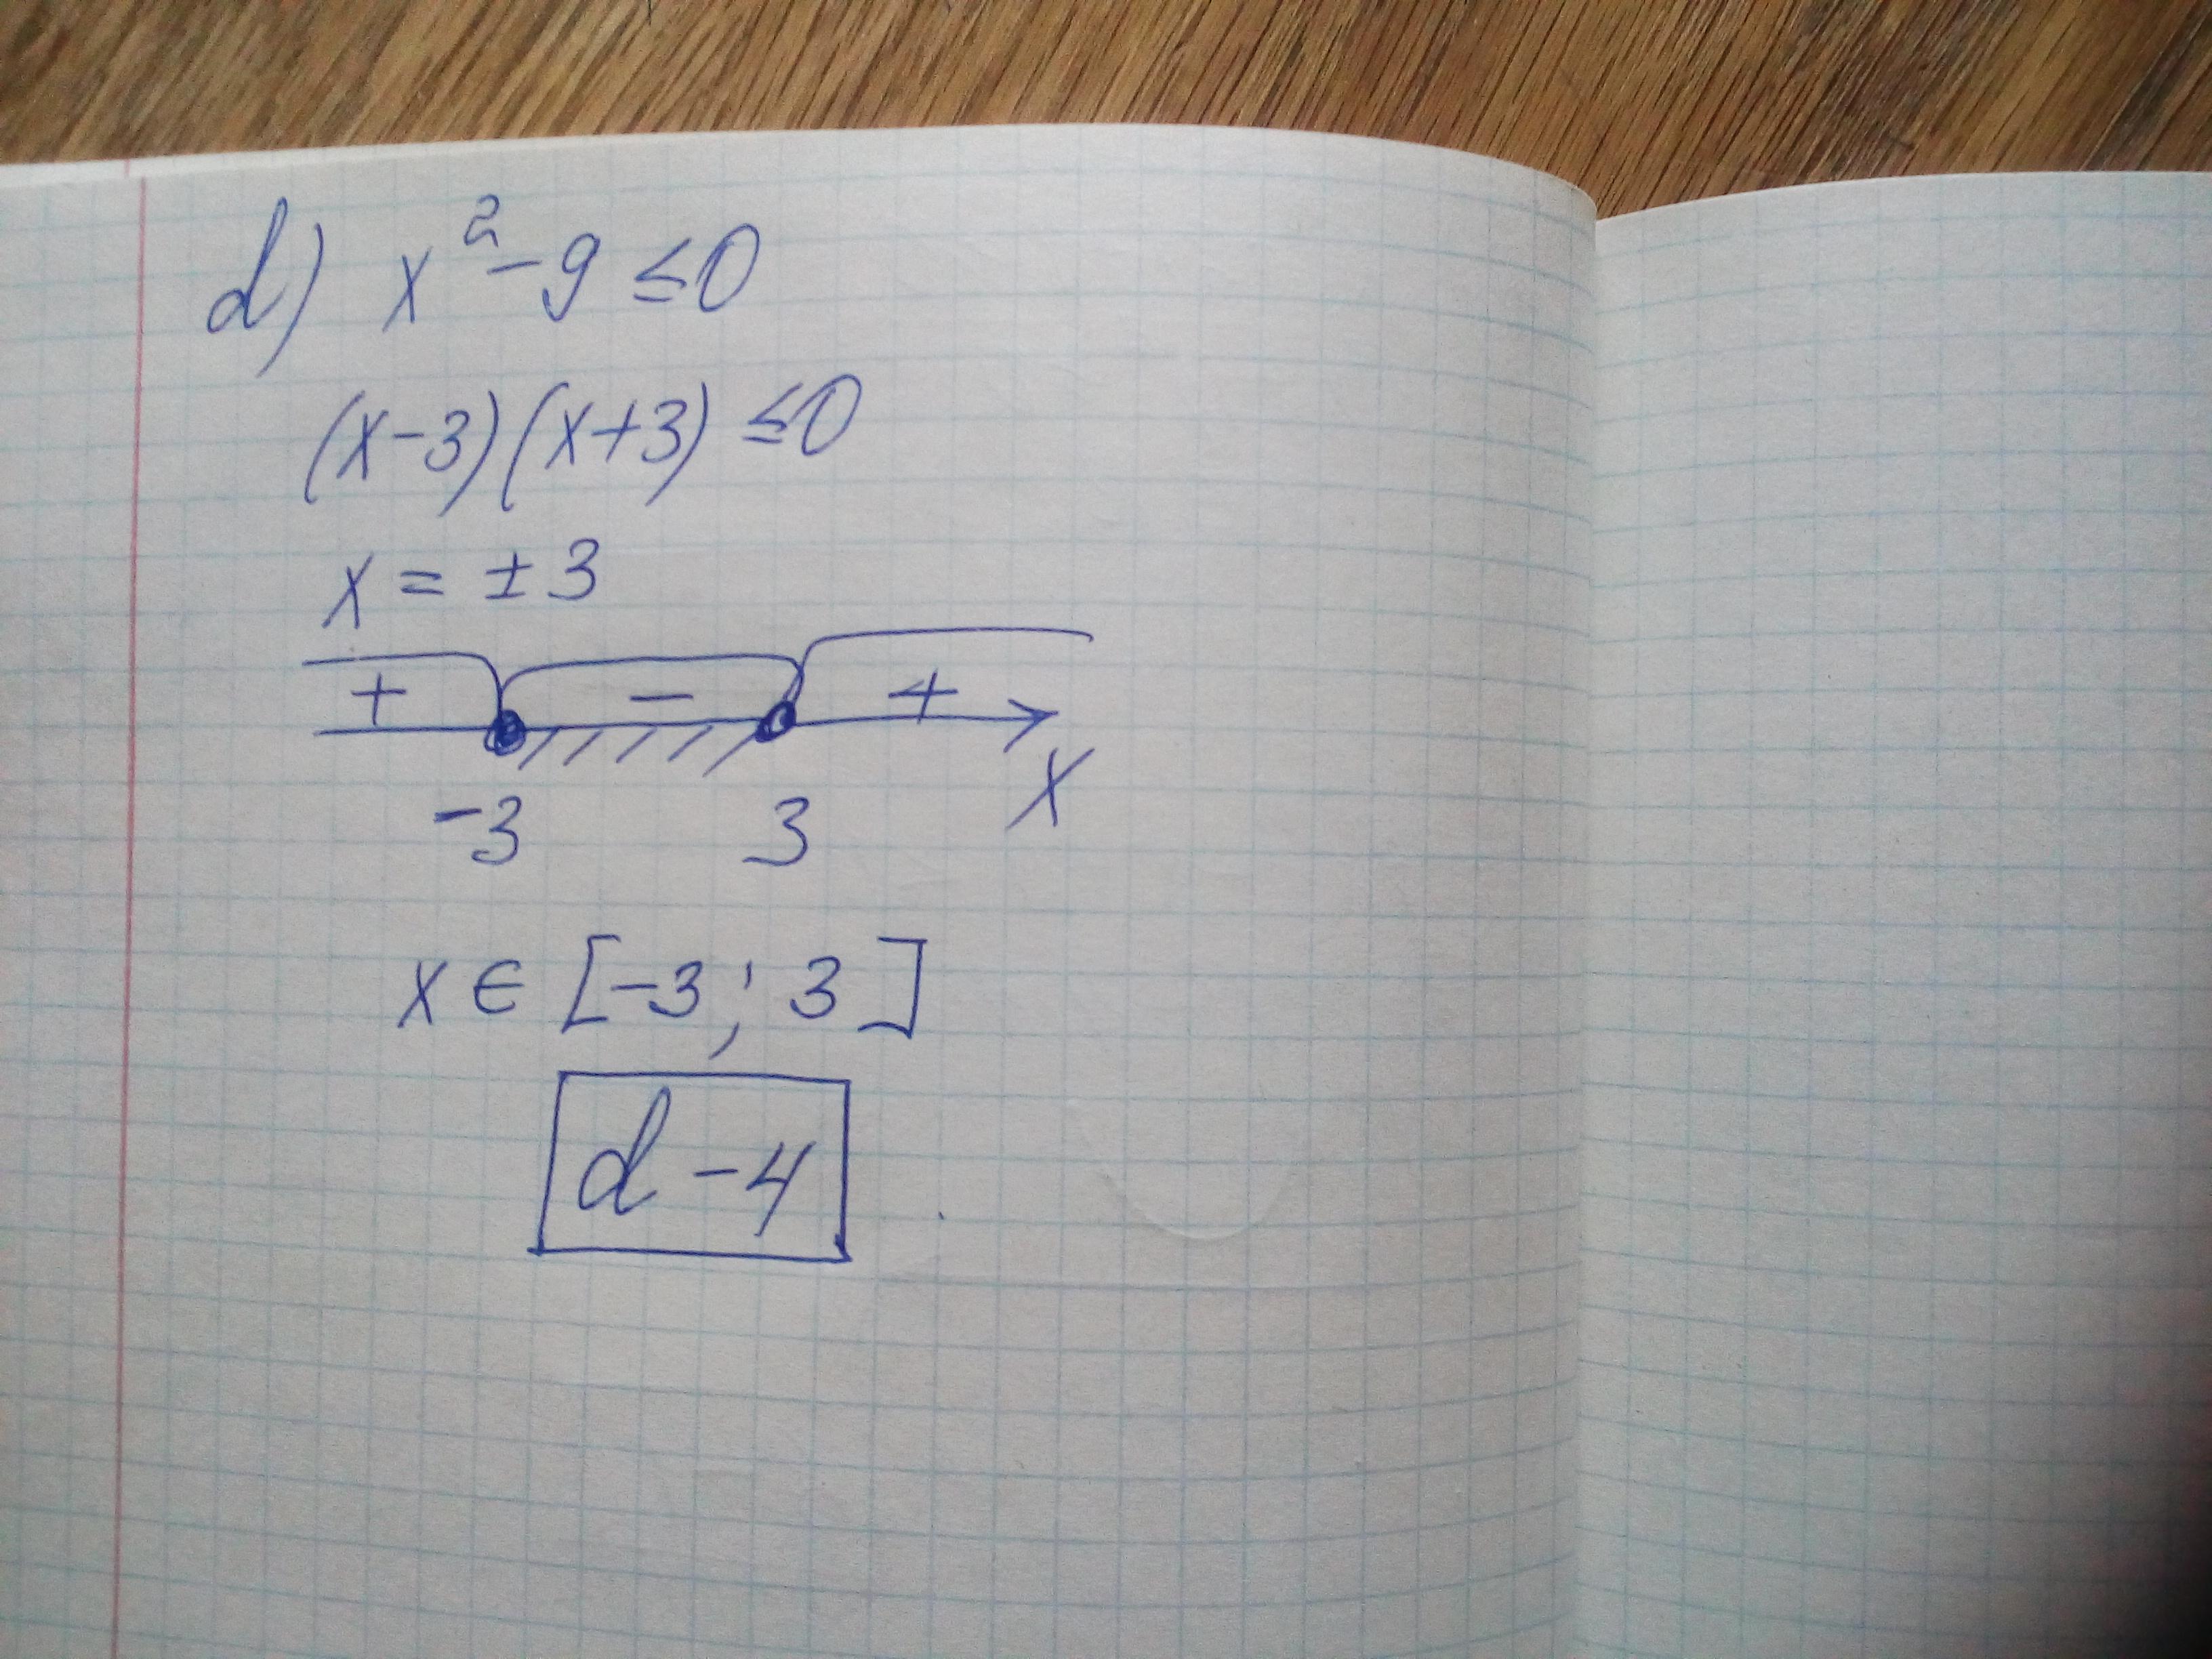 d) x² - 9 ≤ 0
(x-3)(x+3) ≤ 0
x = ± 3
+ - +
-3 3 X
x ∈ [-3; 3]
d - 4